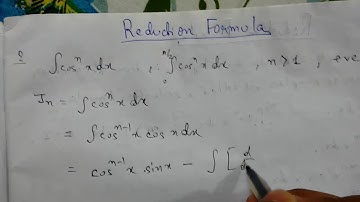 Reduction Formula
Q ∫cosⁿx dx , ∫₀^π/₂ cosⁿx dx , n>1, eve
Jn = ∫cosⁿx dx
= ∫cosⁿ⁻¹x cosx dx
= cosⁿ⁻¹x sinx − ∫[d